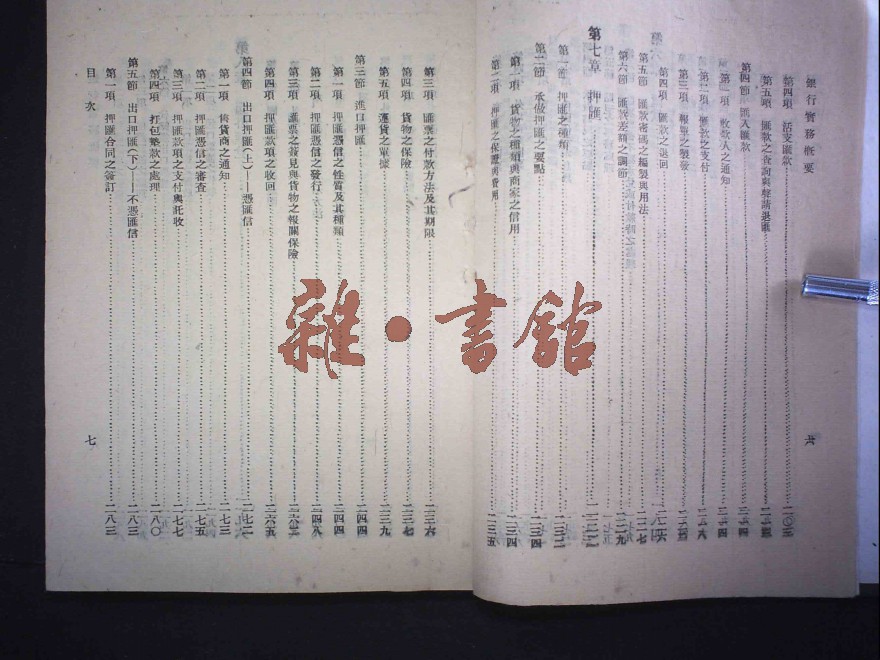 銀行實務概要
六
第四項 活支匯款 二〇三
第五項 匯款之查詢與聲請退匯
第四節 匯入匯款
第一項 收款人之通知
第二項 匯款之支付
第三項 報單之製發
第四項 匯款之退回
第五節 匯款密碼之編製與用法 二二七
第六節 匯款差額之調節 二二九
第七章 押匯
第一節 押匯之種類
第二節 承做押匯之要點 二三四
第一項 貨物之種類與商家之信用 二三四
第二項 押匯之保證與費用 二三五
第三項 匯票之付款方法及其期限 二三六
第四項 貨物之保險 二三七
第五項 運貨之單據 二三九
第三節 進口押匯 二四四
第一項 押匯憑信之性質及其種類 二四四
第二項 押匯憑信之發行 二四八
第三項 匯票之簽見與貨物之報關保險 二六三
第四項 押匯款項之收回 二六五
第四節 出口押匯(上)——憑匯信 二七二
第一項 售貨商之通知 二七三
第二項 押匯憑信之審查 二七五
第三項 押匯款項之支付與託收 二七七
第四項 打包墊款之處理 二八〇
第五節 出口押匯(下)——不憑匯信 二八三
第一項 押匯合同之簽訂 二八三
目次
七
雜·書館